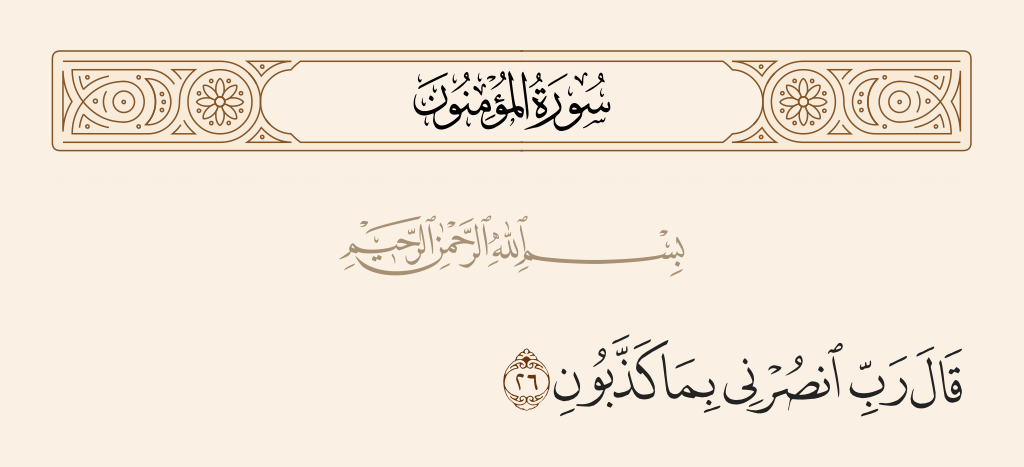 سُورَةُ الْمُؤْمِنُونَ
بِسْمِ ٱللَّهِ ٱلرَّحْمَٰنِ ٱلرَّحِيمِ
قَالَ رَبِّ ٱنصُرْنِى بِمَا كَذَّبُونِ ٢٦